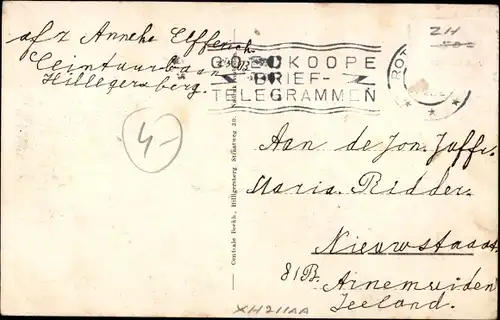 afz Anneke Elfferich.
Ceintuurbaan
Hillegersberg.
GOEDKOOPE
BRIEF-
TELEGRAMMEN
ROT
ZH
500
4-
Centrale Boekh., Hillegersberg Straatweg 30.
Aan de Jon. Juffr.
Maria Ridder.
Nieuwstraat
81B. Arnemuiden
Zeeland.
XH211AA